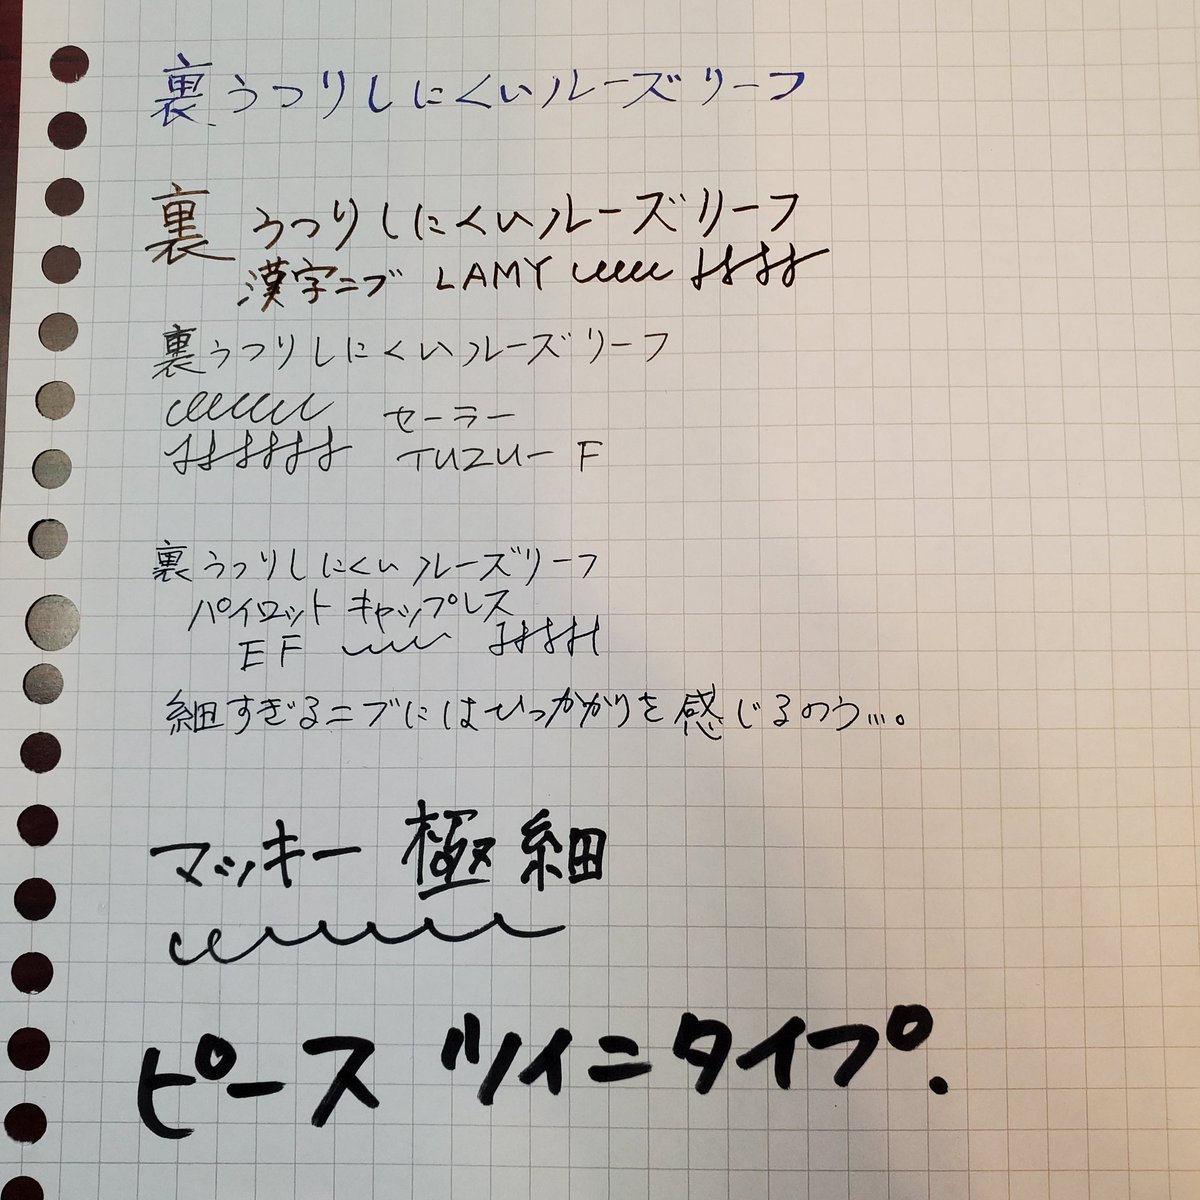 裏うつりしにくいルーズリーフ
裏うつりしにくいルーズリーフ
漢字ニブ LAMY
裏うつりしにくいルーズリーフ
セーラー
TUZU- F
裏うつりしにくいルーズリーフ
パイロットキャップレス
EF
細すぎるニブにはひっかかりを感じるのう…。
マッキー 極細
ピース ツイニタイプ.